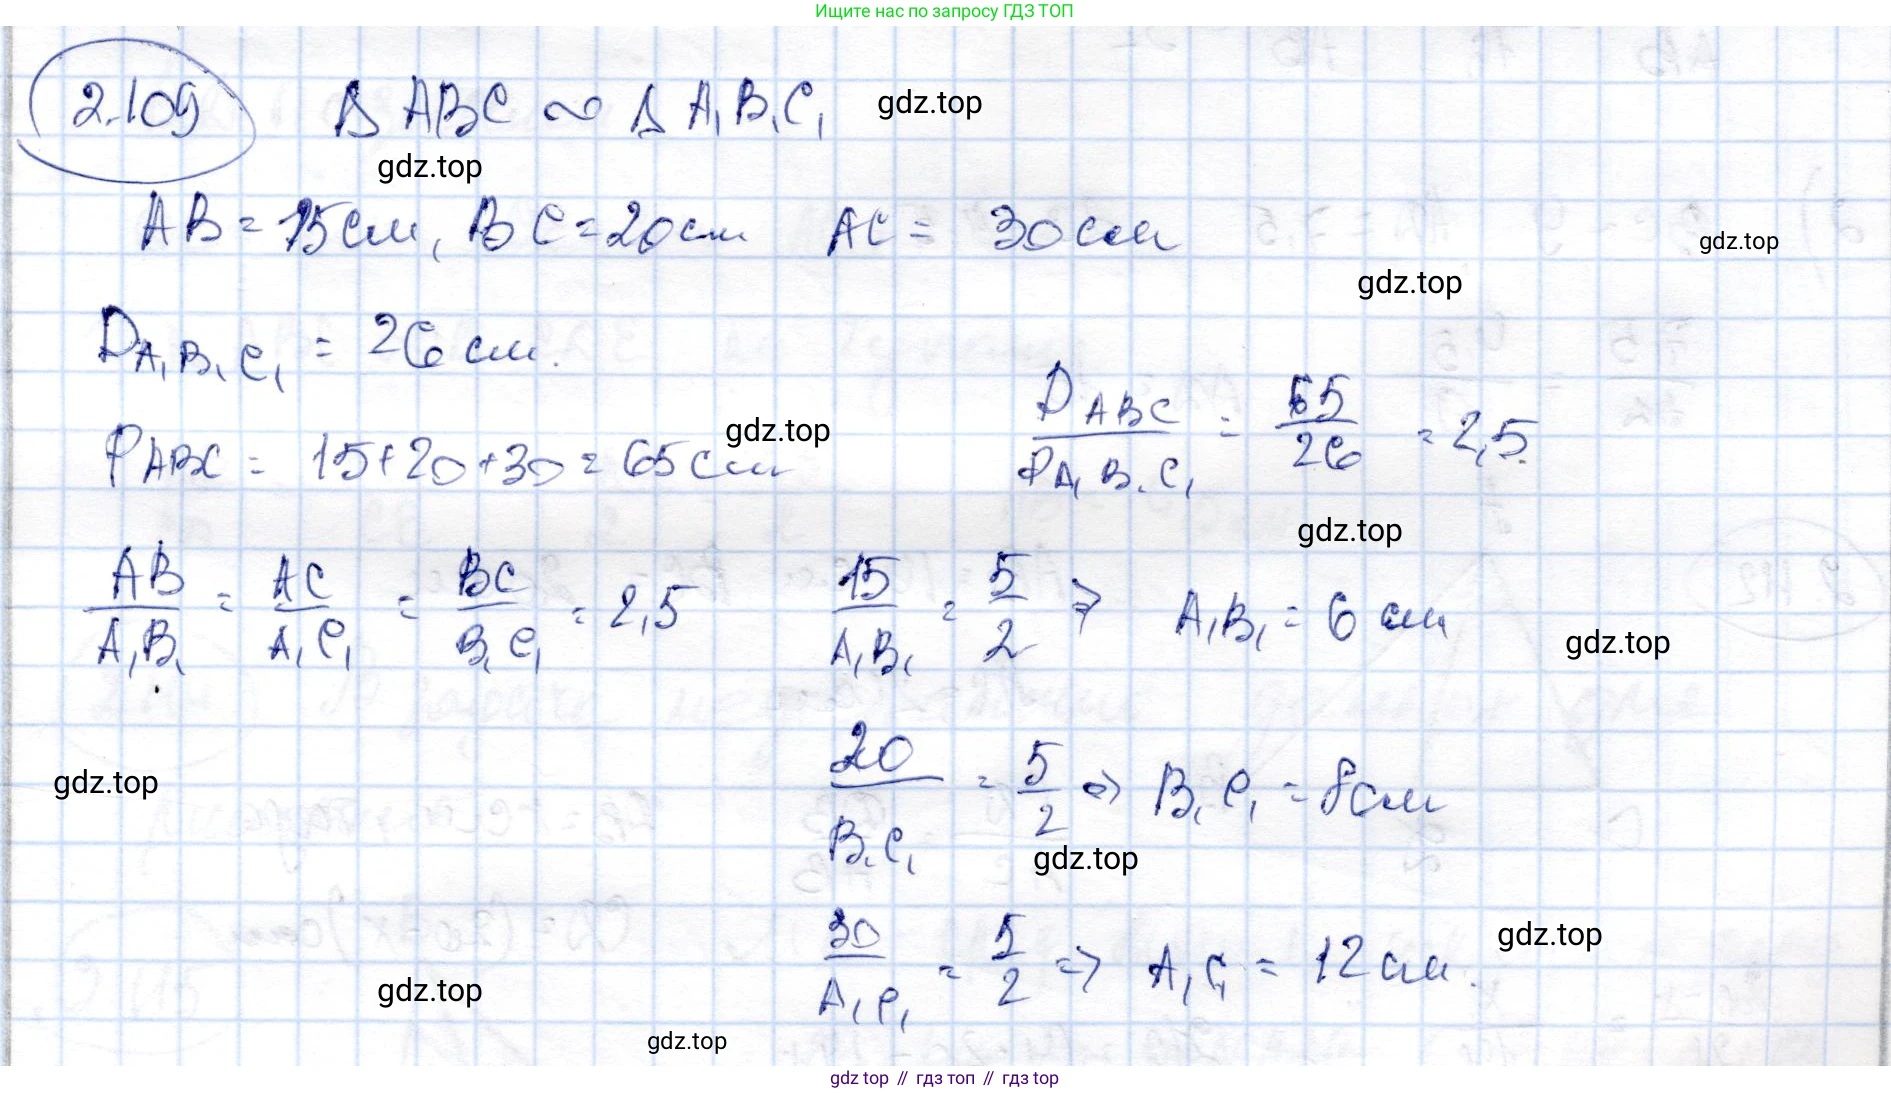 Ищите нас по запросу ГДЗ ТОП
2.109 Δ ABC ∾ Δ A₁B₁C₁ gdz.top
gdz.top
AB = 15 см, BC = 20 см AC = 30 см
gdz.top
gdz.top
P_A₁B₁C₁ = 26 см.
P_ABC = 15+20+30 = 65 см gdz.top P_ABC / P_A₁B₁C₁ = 65/26 = 2,5.
gdz.top
AB/A₁B₁ = AC/A₁C₁ = BC/B₁C₁ = 2,5 15/A₁B₁ = 5/2 ⇒ A₁B₁ = 6 см
gdz.top
gdz.top 20/B₁C₁ = 5/2 ⇒ B₁C₁ = 8 см
gdz.top
gdz.top
30/A₁C₁ = 5/2 ⇒ A₁C₁ = 12 см.
gdz.top
gdz.top
gdz top // гдз топ // gdz top